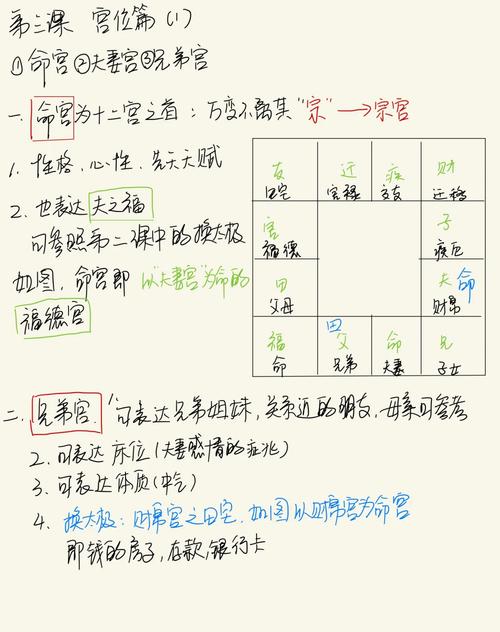 第三课 宫位篇(1)
①命宫②夫妻宫③兄弟宫
一. 命宫为十二宫之首：万变不离其"宗"→宗宫
1. 性格、心性、先天天赋
2. 也表达夫之福
可参照第二课中的换太极
如图，命宫即以"夫妻宫"为命的
福德宫
友 迁 疾 财
田宅 官禄 交友 迁移
官 子
福德 疾厄
田 夫 命
父母 财帛
福 田 父 命 兄
命 兄弟 夫妻 子女
二. 兄弟宫. 1可表达兄弟姐妹，关系近的朋友，母亲可参考
2. 可表达床位(夫妻感情的症兆)
3. 可表达体质(中气)
4. 换太极：财帛宫之田宅. 如图以财帛宫为命宫
即钱的房子，存款，银行卡